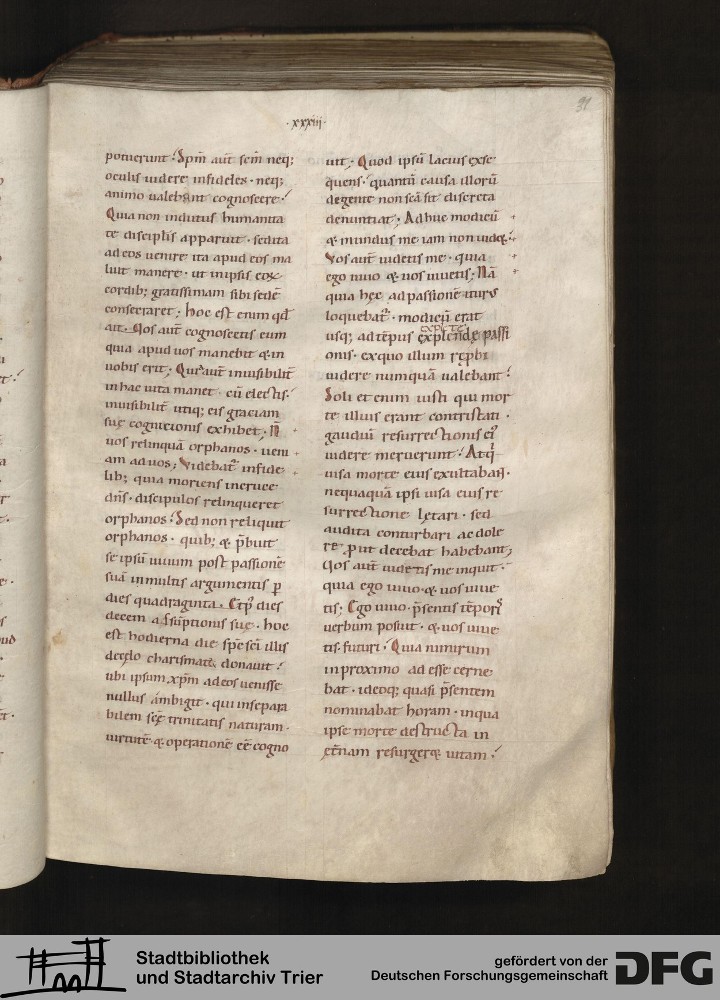 ·xxxiii·
31
potuerunt. Spm̄ aut̄ sc̄m neq;
oculis uidere infideles· neq;
animo ualebant cognoscere.
Quia non indutus humanita
te discipl̄is apparuit· sed ita
ad eos uenire ita apud eos ma
luit manere· ut in ipsis eoꝝ
cordib; gratissimam sibi sedē
consecraret; hoc est enim qd̄
ait. Uos aut̄ cognoscetis eum
quia apud uos manebit & in
uobis erit; Qui aut̄ inuisibilit̄
in hac uita manet· cū electis·
inuisibilit̄ utiq; eis graciam
suę cognicionis exhibet; N̄
uos relinquā orphanos· ueni
am ad uos; Videbat᷑ infide
lib; quia moriens in cruce
dn̄s· discipulos relinqueret
orphanos. Sed non reliquit
orphanos· quib; & p̄buit
se ipsū uiuum post passionē
suā in multis argumentis ꝑ
dies quadraginta. Et pꝰ dies
decem assūptionis suę· hoc
est hodierna die sp̄c sc̄i illis
de cęlo charismata donauit.
ubi ipsum xp̄m ad eos uenisse
nullus ambigit· qui insepara
bilem sc̄ę trinitatis naturam·
uirtutē· & operationē eē cogno
uit· Quod ipsū lacius exse
quens· quantū causa illorū
degente non sc̄a sit discreta
denuntiat; Adhuc modicū
& mundus me iam non uid&.
Vos aut̄ uidetis me· quia
ego uiuo & uos uiuetis; Nā
quia hęc ad passionē iturꝰ
loquebat᷑· modicū erat
explete
usq; ad tēpus explendę passi
onis· ex quo illum rep̄bi
uidere numquā ualebant.
Soli etenim iusti qui mor
te illius erant contristati·
gaudiū resurrectionis eiꝰ
uidere meruerunt. Atq̄
uisa morte eius exultabaꝶ·
nequaquā ipsi uisa eius re
surrectione lętari· sed
audita conturbari ac dole
re ꝓut decebat habebant;
Uos aut̄ uidetis me inquit·
quia ego uiuo· & uos uiue
tis; Ego uiuo· p̄sentis tēporꝭ
uerbum posuit· & uos uiue
tis· futuri. Quia nimirum
in proximo adesse cerne
bat· ideoq; quasi p̄sentem
nominabat horam· in qua
ipse morte destructa in
ęt̄nam resurger& uitam.
Stadtbibliothek
und Stadtarchiv Trier
gefördert von der
Deutschen Forschungsgemeinschaft
DFG